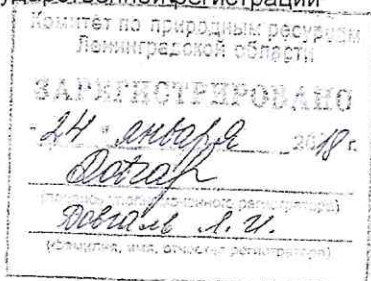 ударственной регистрации
Комитет по природным ресурсам
Ленинградской области
ЗАРЕГИСТРИРОВАНО
"24" января 2018 г.
(подпись уполномоченного регистратора)
Довгаль А. И.
(фамилия, имя, отчество регистратора)